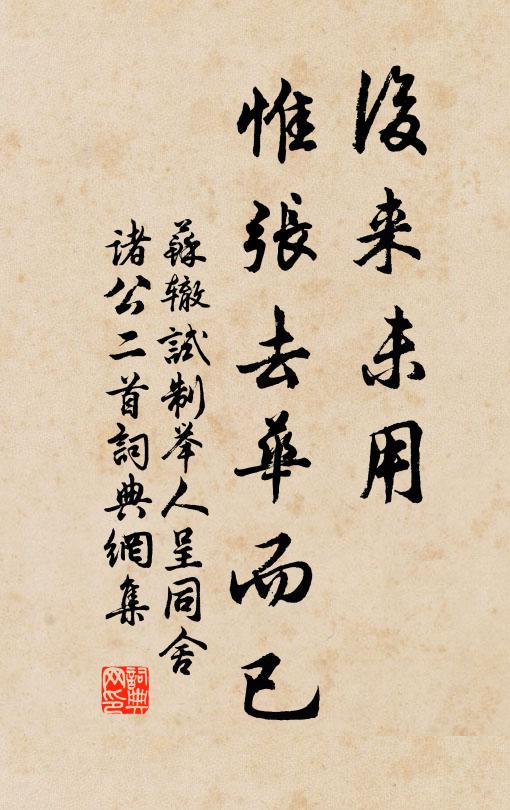 後来未用
惟張去華而已
蘇辙試制举人呈同舍
諸公二首詞典網集
詞典
网印